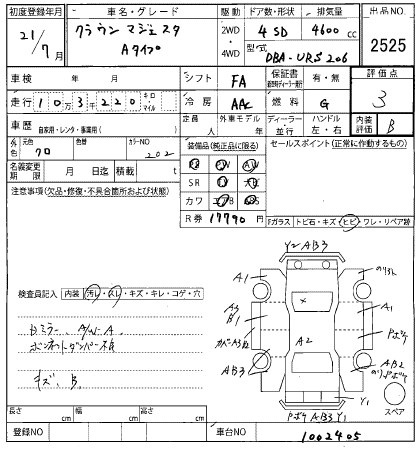 初度登録年月 車名・グレード 駆動 ドア数・形状 排気量 出品NO.
21/7月 クラウン マジェスタ 2WD・4WD 4 SD 4600 cc 2525
Aタイプ 型式 DBA-URS206
車検 年 月 シフト FA 保証書 有・無 評価点
走行 10万3千220 キロ・マイル 冷房 AAC 燃料 G 3
車歴 自家用・レンタ・事業用( ) 定員 人 外車モデル 年 ディーラー・並行 ハンドル 左・右 内装評価 B
外色 元色 クロ 色替 カラーNO 202 装備品(純正品に限る) セールスポイント(正常に作動するもの)
名義変更期限 月 日迄 積載 t PS PW AW
注意事項(欠品・修復・不具合箇所および状態) SR
カワ
R券 17790 円
Fガラス トビ石・キズ・ヒビ・ワレ・リペア跡
検査員記入 内装 汚れ・スレ・キズ・キレ・コゲ・穴
Bミラー A/W-A
ボンネットダンパー不良
キズ、B
Y2 AB3
A1
A1
A2
AB3
AB2
Y1
AB3 Y1
スペア
長さ cm 幅 cm 高さ cm
登録NO 車台NO 1002405